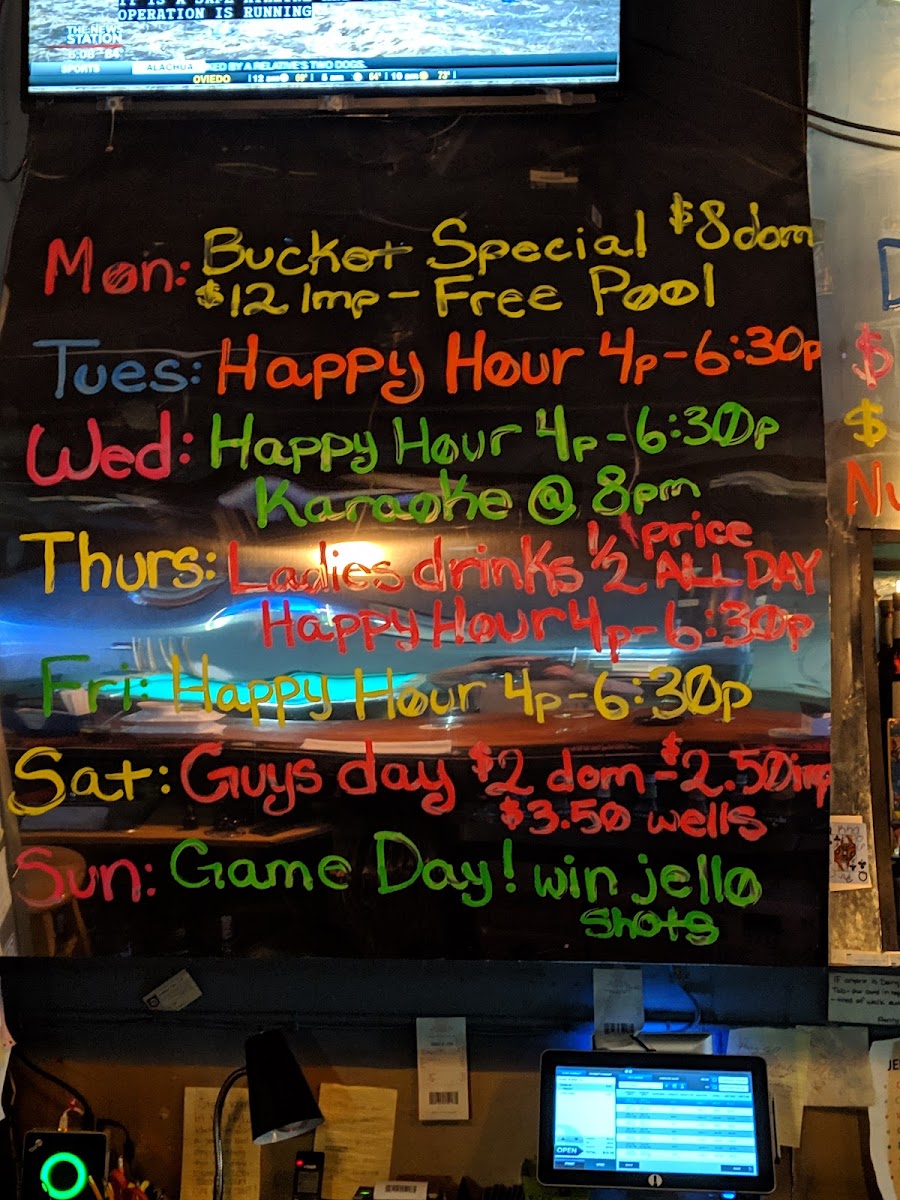 OPERATION IS RUNNING
THE NEWS
STATION
SPORTS ALACHUA KED BY A RELATIVE'S TWO DOGS.
OVIEDO 12 am 69° 5 am 64° 10 am 73°
Mon: Bucket Special $8 dom
$12 Imp - Free Pool
Tues: Happy Hour 4p-6:30p
Wed: Happy Hour 4p-6:30p
Karaoke @ 8pm
Thurs: Ladies drinks 1/2 price ALL DAY
Happy Hour 4p-6:30p
Fri: Happy Hour 4p-6:30p
Sat: Guys day $2 dom - $2.50 imp
$3.50 wells
Sun: Game Day! win jello
shots
D
$
$
Nu
OPEN
JE